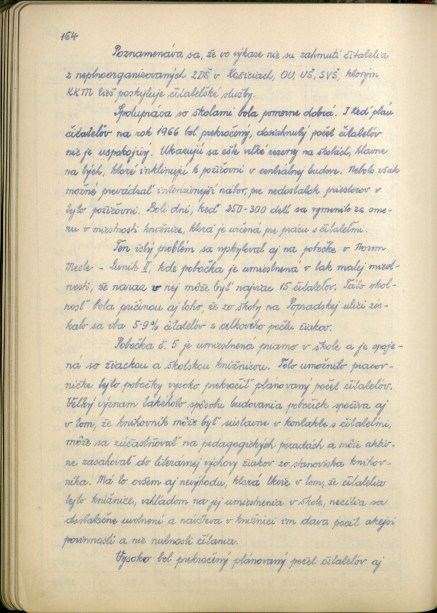 164
Poznamenáva sa, že vo výkaze nie sú zahrnutí čitatelia
z neplnoorganizovaných ZDŠ v Košiciach, OU, UŠ, SVŠ, ktorým
KKM tiež poskytuje čitateľské služby.
Spolupráca so školami bola pomerne dobrá. I keď plán
čitateľov na rok 1966 bol prekročený, dosiahnutý počet čitateľov
nie je uspokojivý. Ukazujú sa ešte veľké rezervy na školách, hlavne
na tých, ktoré inklinujú k požičovni v centrálnej budove. Nebolo však
možné prevádzať intenzívnejší nábor, pre nedostatok priestorov v
tejto požičovni. Boli dni, keď 250-300 detí sa vymenilo za sme-
nu v miestnosti knižnice, ktorá je určená pre prácu s čitateľmi.
Ten istý problém sa vyskytoval aj na pobočke v Novom
Meste - Luník I, kde pobočka je umiestnená v tak malej miest-
nosti, že naraz v nej môže byť najviac 15 čitateľov. Táto okol-
nosť bola príčinou aj toho, že zo školy na Popradskej ulici zís-
kalo sa iba 59% čitateľov z celkového počtu žiakov.
Pobočka č. 5 je umiestnená priamo v škole a je spoje-
ná so žiackou a školskou knižnicou. Toto umožnilo pracov-
níčke tejto pobočky vysoko prekročiť plánovaný počet čitateľov.
Veľký význam takéhoto spôsobu budovania pobočiek spočíva aj
v tom, že knihovník môže byť sústavne v kontakte s čitateľmi,
môže sa zúčastňovať na pedagogických poradách a môže aktív-
ne zasahovať do literárnej výchovy žiakov zo stanoviska knihov-
níka. Má to ovšem aj nevýhodu, ktorá tkvie v tom, že čitatelia
tejto knižnice, vzhľadom na jej umiestnenie v škole, necítia sa
dostatočne uvoľnení a návšteva v knižnici im dáva pocit akejsi
povinnosti a nie nutnosti čítania.
Vysoko bol prekročený plánovaný počet čitateľov aj